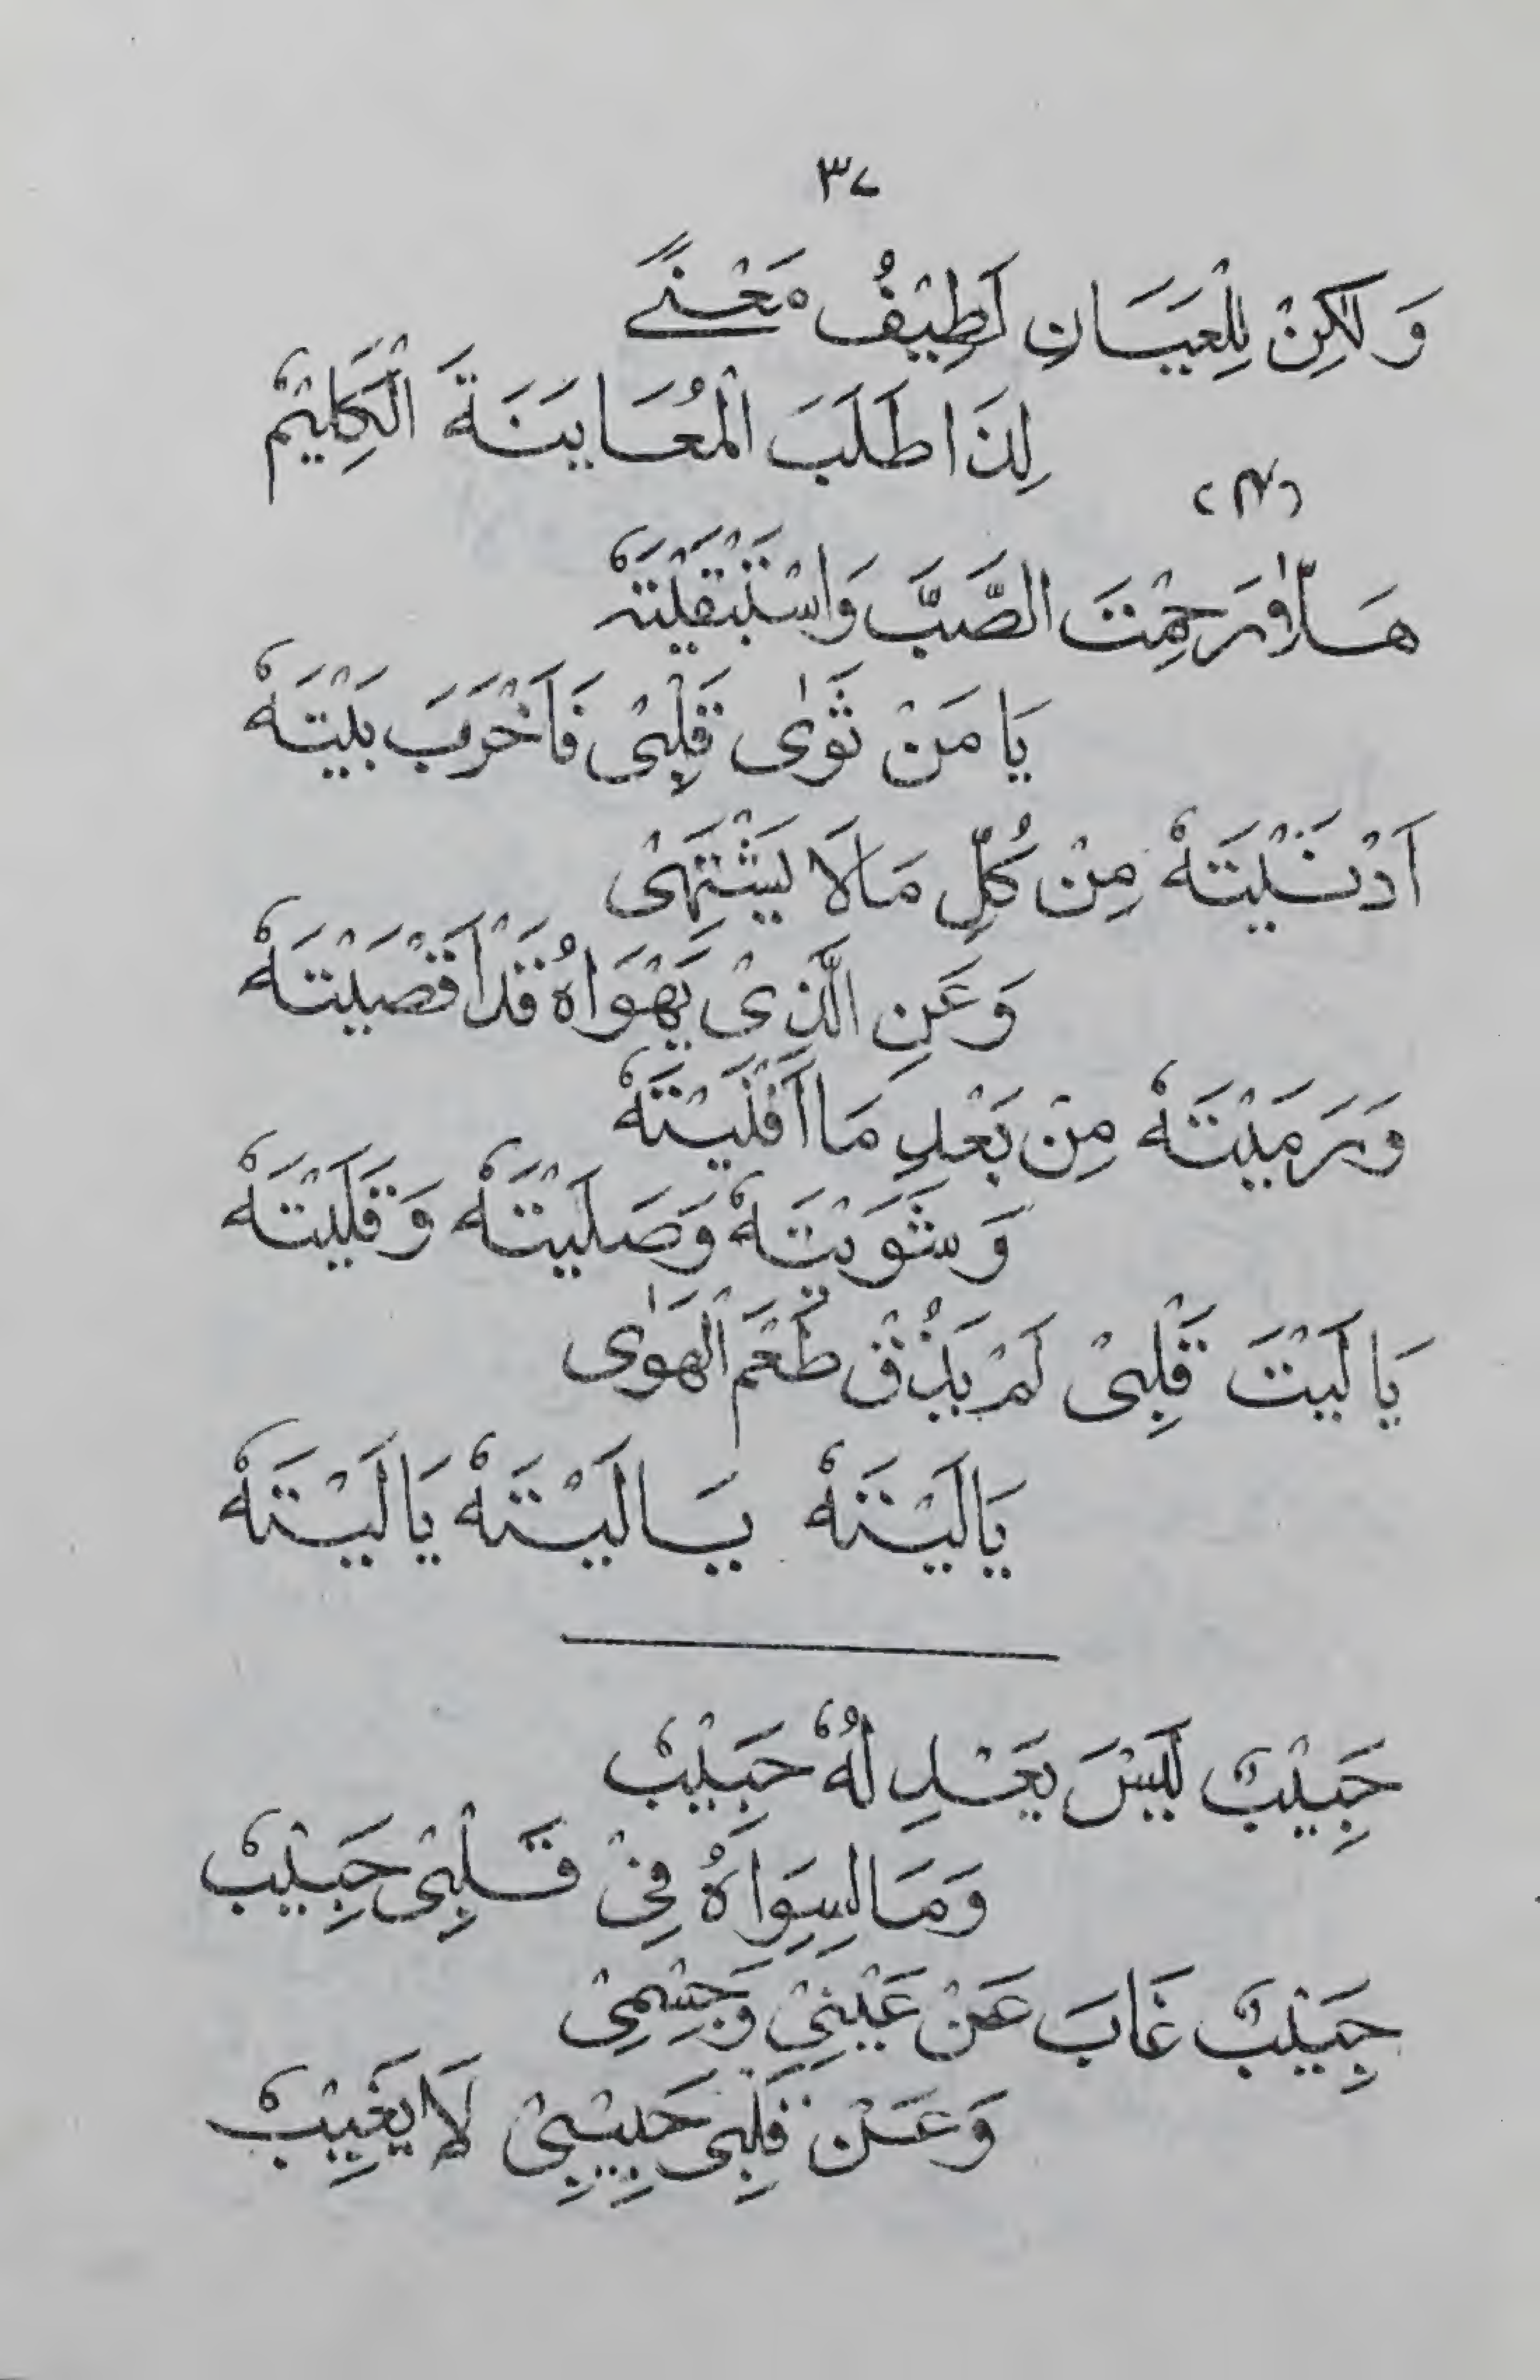 ٣٧
وَلٰكِنْ لِلْعِيَانِ لَطِيْفُ مَعْنًى
لِذَا طَلَبَ الْمُعَايَنَةَ الْكَلِيْمْ
هَلَّا رَحِمْتَ الصَّبَّ وَاسْتَبْقَيْتَهْ
يَا مَنْ ثَوٰى قَلْبِیْ فَاَخْرَبَ بَيْتَهْ
اَدْنَيْتَهْ مِنْ كُلِّ مَالَا يَشْتَهِیْ
وَعَنِ الَّذِیْ يَهْوَاهُ قَدْ اَقْصَيْتَهْ
وَرَمَيْتَهْ مِنْ بَعْدِ مَا اَقْلَيْتَهْ
وَشَوَيْتَهْ وَصَلَيْتَهْ وَقَلَيْتَهْ
يَا لَيْتَ قَلْبِیْ لَمْ يَذُقْ طَعْمَ الْهَوٰی
يَا لَيْتَهْ يَا لَيْتَهْ يَا لَيْتَهْ
حَبِيْبٌ لَيْسَ يَعْدِلُهُ حَبِيْبْ
وَمَا لِسِوَاهُ فِیْ قَلْبِیْ حَبِيْبْ
حَبِيْبٌ غَابَ عَنْ عَيْنِیْ وَجِسْمِیْ
وَعَنْ قَلْبِی حَبِيْبِیْ لَا يَغِيْبْ